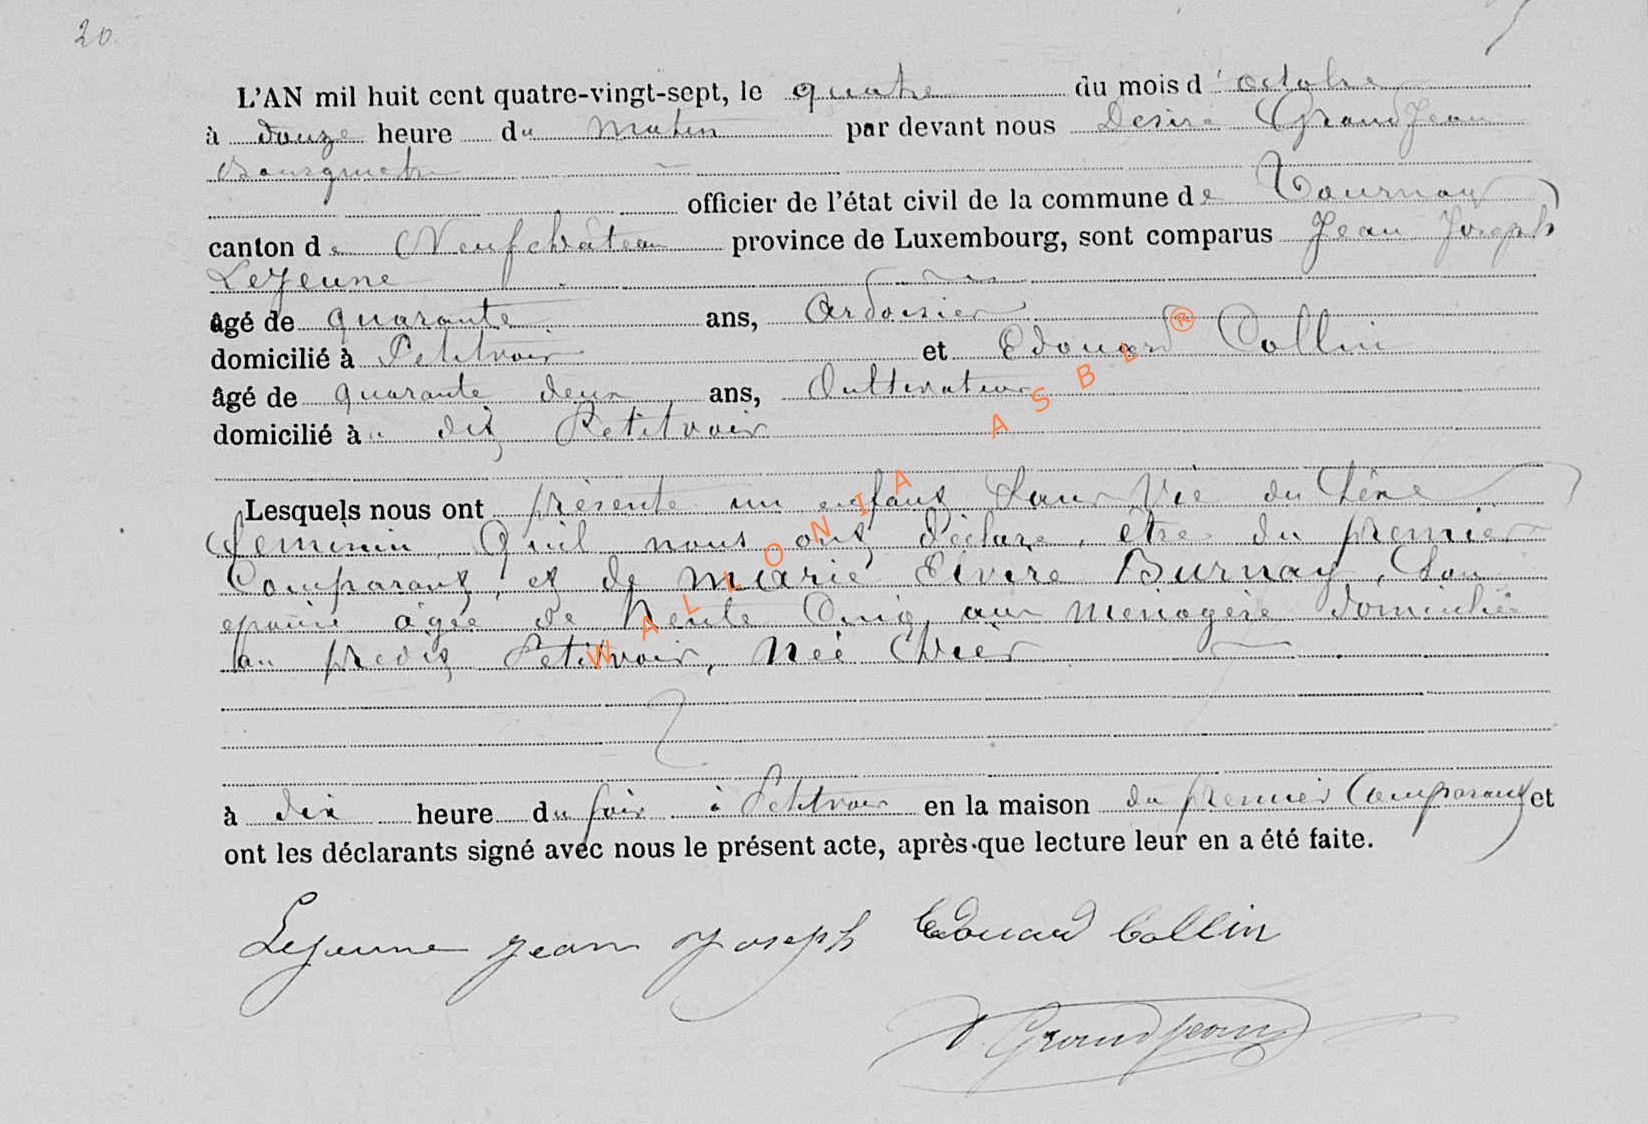 20
L'AN mil huit cent quatre-vingt-sept, le quatre du mois d'octobre
à douze heure du matin par devant nous Desire GrandJean
Bourgmetre
officier de l'état civil de la commune de Tournay
canton de Neufchâteau province de Luxembourg, sont comparus Jean Joseph
LeJeune
âgé de quarante ans, Ardoisier
domicilié à Petitvoir et Edouard Collin
âgé de quarante deux ans, Cultivateur
domicilié à u dit Petitvoir
Lesquels nous ont présenté un enfant sans Vie du Sexe
feminin Quil nous ont déclaré, être du premier
Comparant, et de Marie Elvire Burnay, Son
epouse agée de trente Cinq ans menagère domiciliée
au predit Petitvoir, Née hier
à dix heure du soir à Petitvoir en la maison du premier Comparant et
ont les déclarants signé avec nous le présent acte, après que lecture leur en a été faite.
Lejeune Jean Joseph Edouard Collin
D. Grandjean
WALLONIA ASBL ®